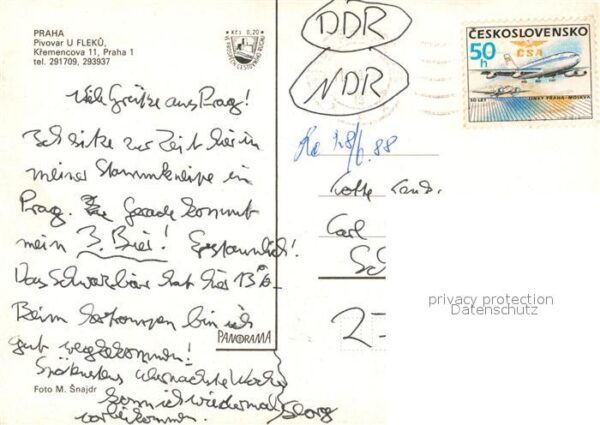 PRAHA
Pivovar U FLEKŮ,
Křemencova 11, Praha 1
tel. 291709, 293937
Kčs 0,20
Viele Grüße aus Prag!
Ich sitze zur Zeit hier in
meiner Stammkneipe in
Prag. Gerade kommt
mein 3. Bier! Erstaunlich!
Das Schwarzbier hat hier 13%
Beim bin ich
gut weggekommen!
Spätestens übernächste Woche
komm ich wiedermal
vorbeikommen. Georg
Foto M. Šnajdr
PANORAMA
DDR
NDR
ČESKOSLOVENSKO
50 h
ČSA
50 LET LINKY PRAHA-MOSKVA
28/6.88
Lotte
Carl
privacy protection
Datenschutz